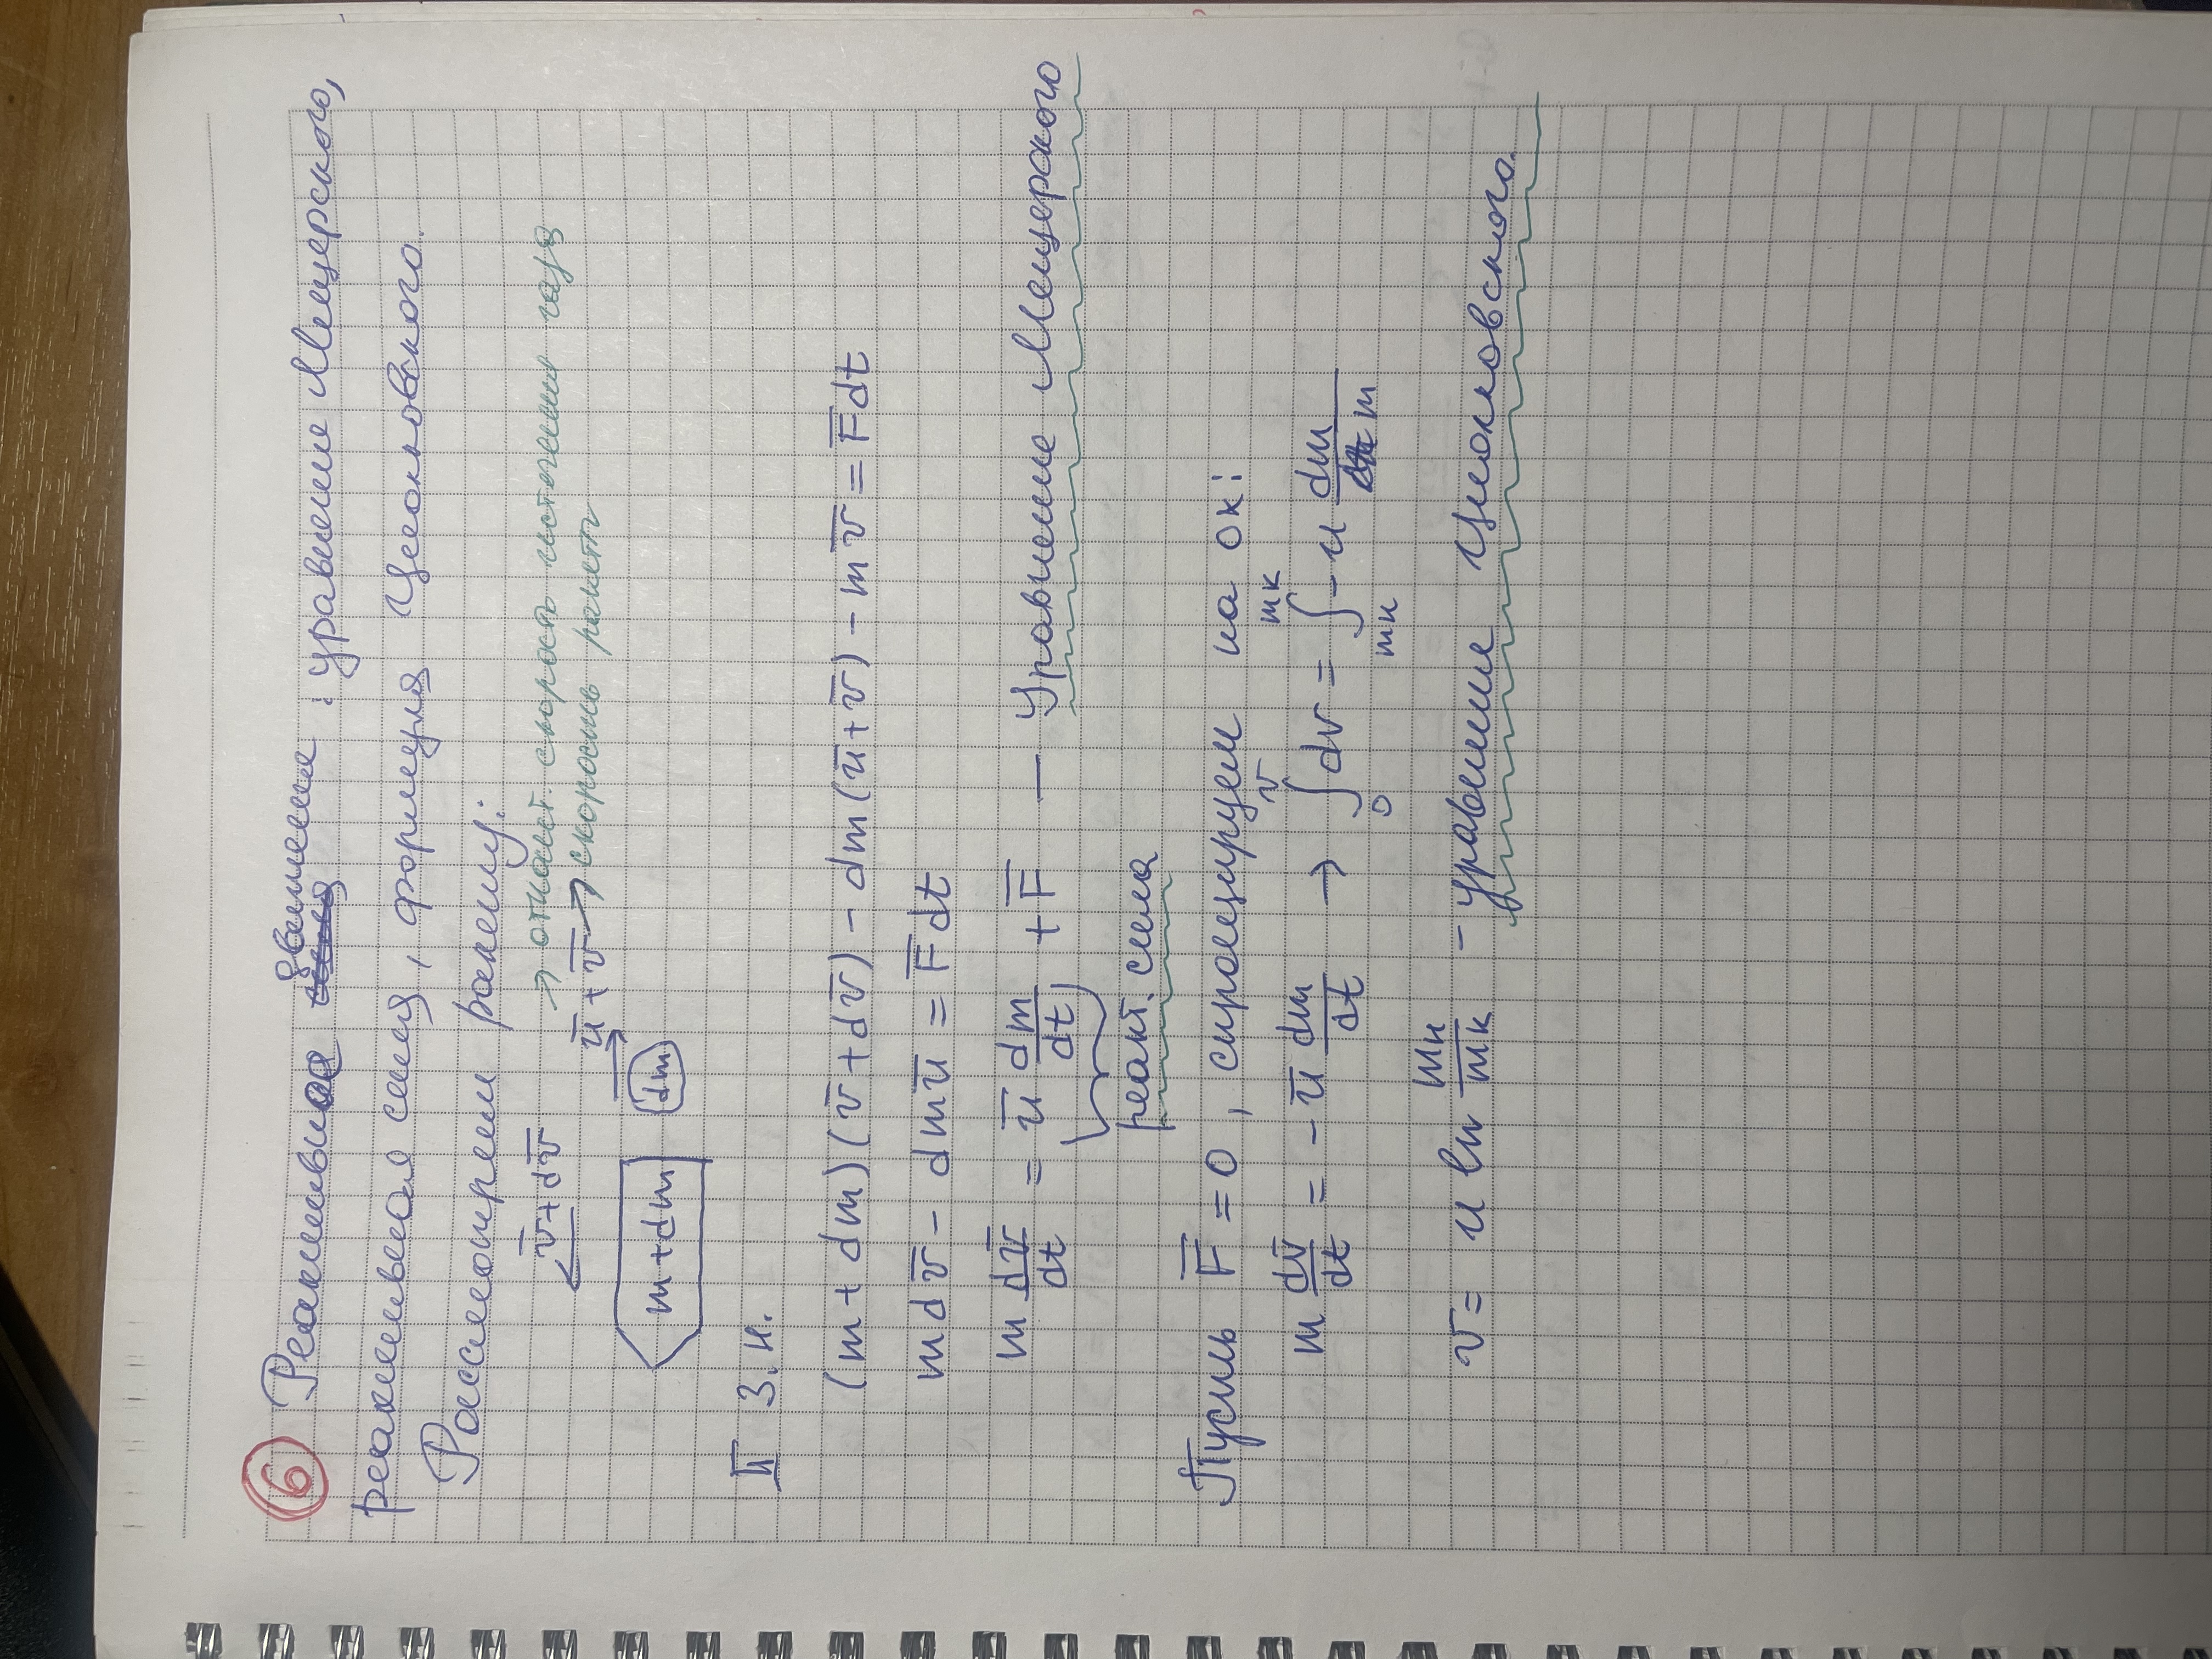 6 Реактивное движение : уравнение Мещерского,
реактивная сила, формула Циолковского.
Рассмотрим ракету:
v̅+dv̅ → относит. скорость истечения газа
u̅ + v̅ → скорость ракеты
m+dm dm
II З.Н.
(m + dm)(v̅+dv̅) - dm(u̅+v̅) - mv̅ = F̅dt
mdv̅ - dmu̅ = F̅dt
m dv̅/dt = u̅ dm/dt + F̅ — Уравнение Мещерского
реакт. сила
Пусть F̅ = 0, спроецируем на ox:
m dv̅/dt = - u̅ dm/dt → ∫₀^v dv = ∫_{mн}^{mк} - u dm/m
v = u ln mн/mк - уравнение Циолковского.